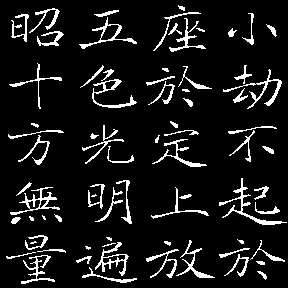 小劫不起於
座於定上放
五色光明遍
昭十方無量